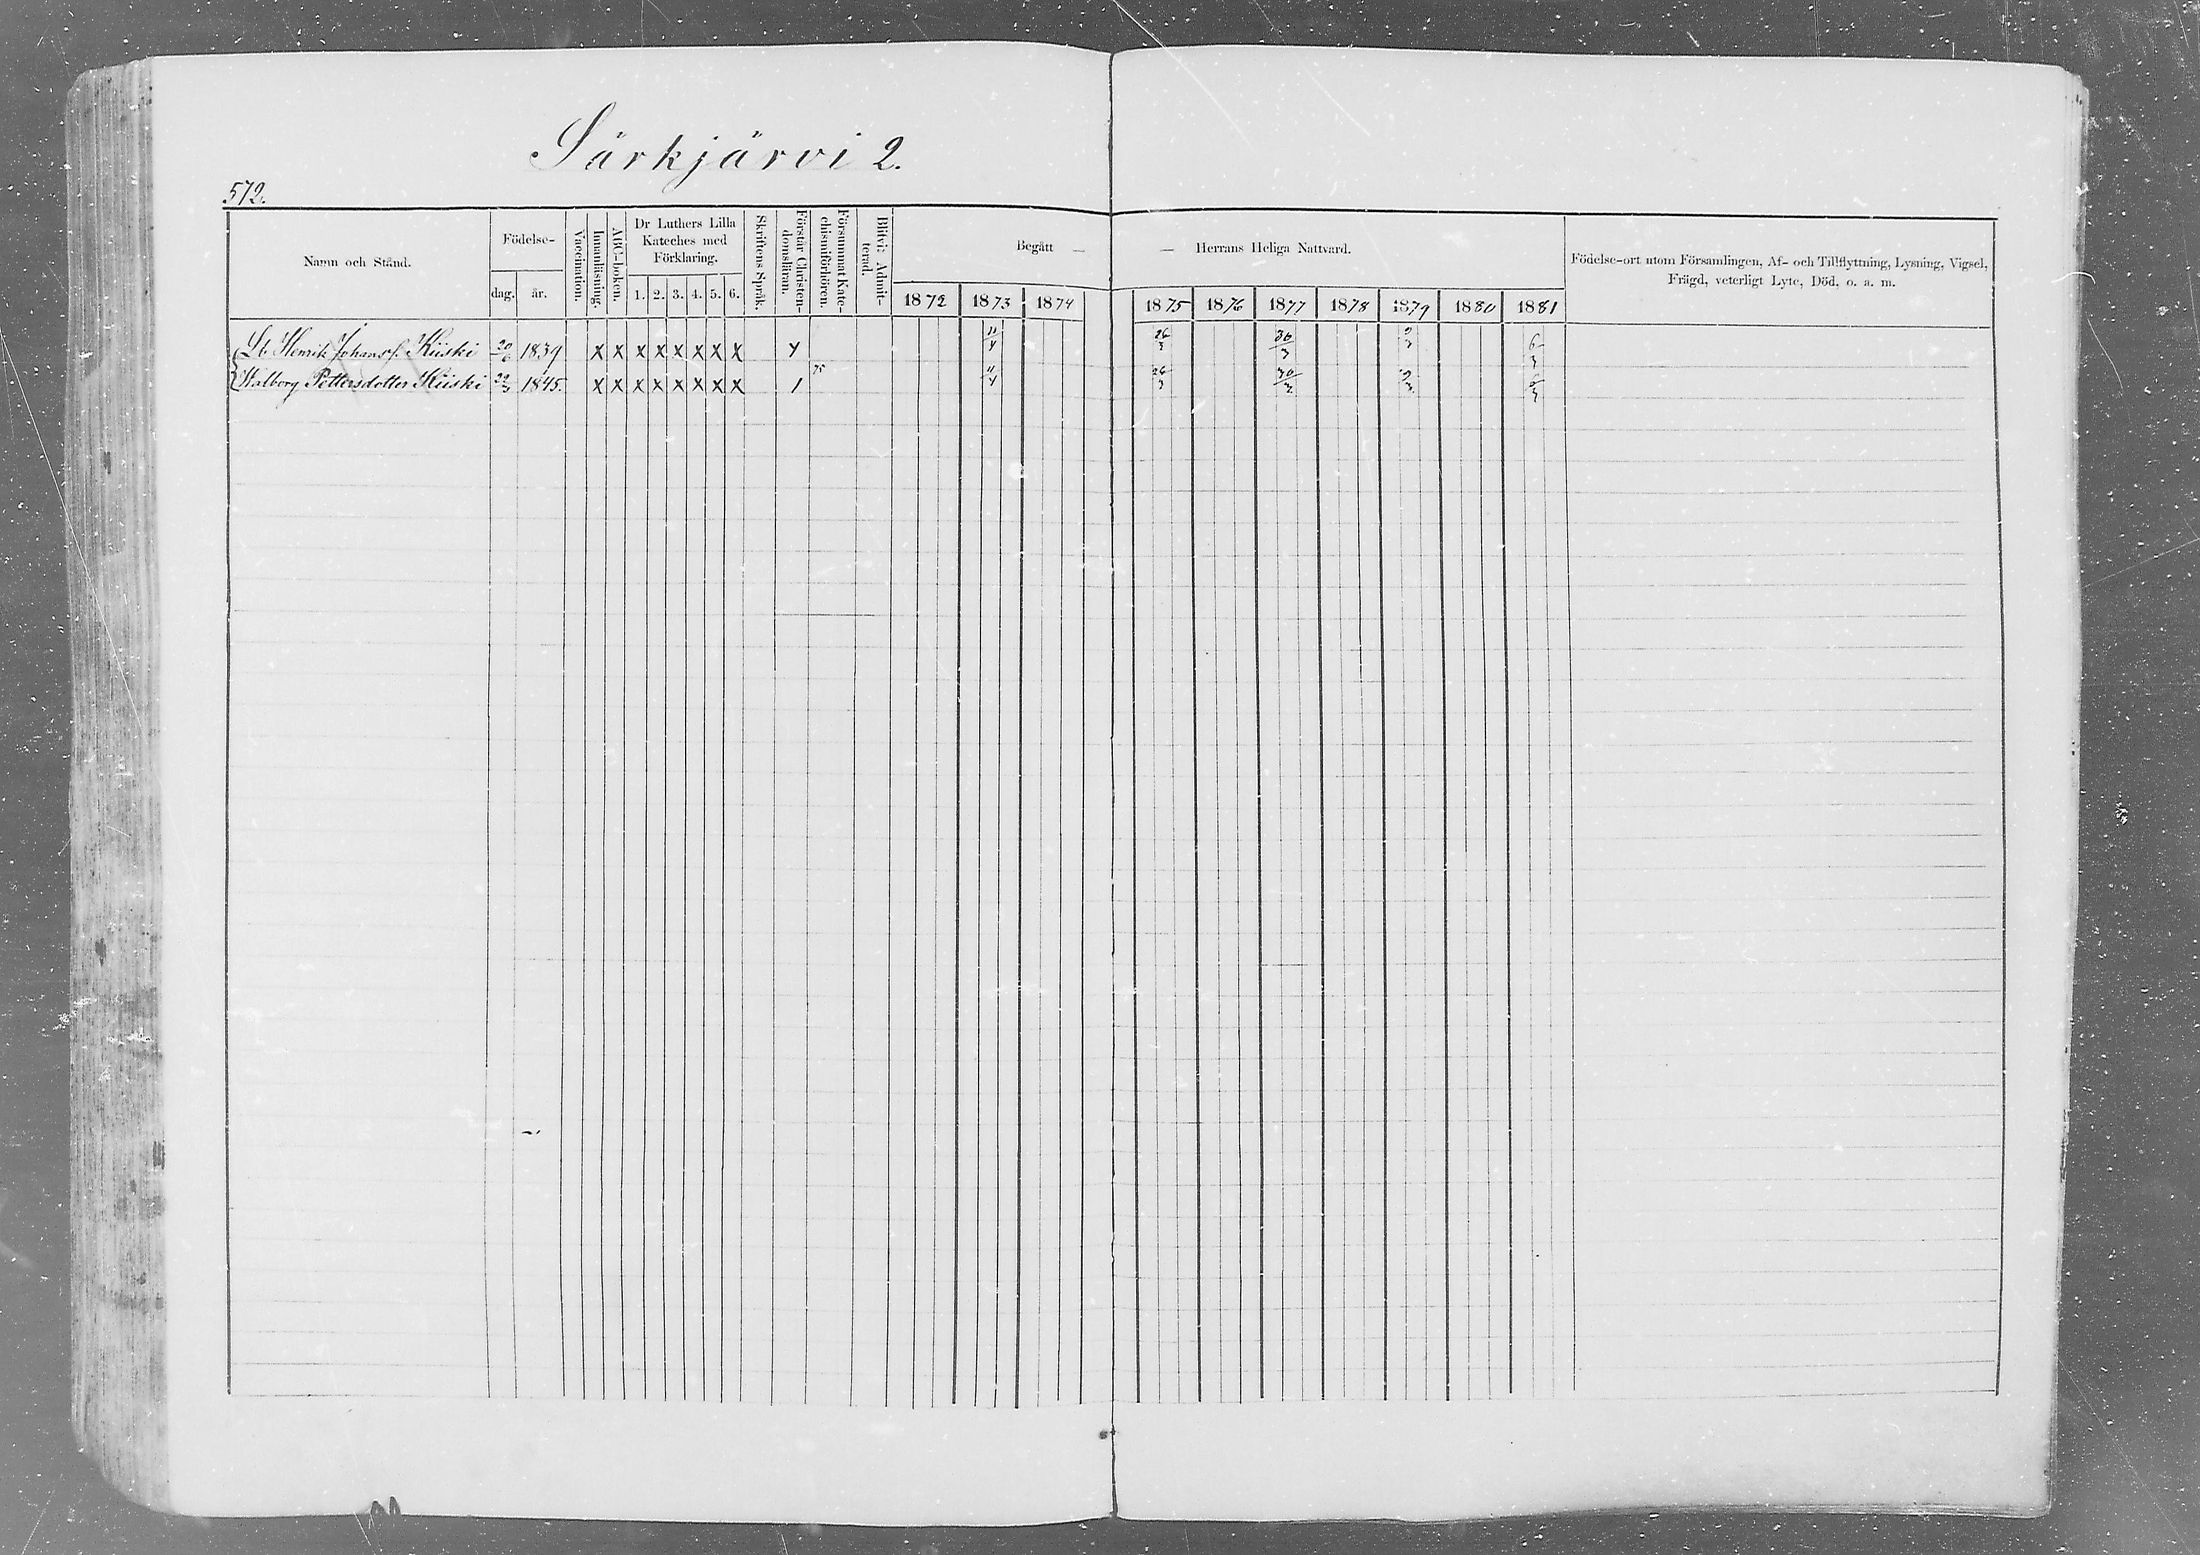 Särkjärvi 2.
572.
Namn och Stånd.
Födelse-
dag. år.
Vaccination.
Innanläsning.
ABC-boken.
Dr Luthers Lilla
Kateches med
Förklaring.
1. 2. 3. 4. 5. 6.
Skriftens Språk.
Förstår Christen-
domsläran.
Försummat Kate-
chismiförhören.
Blifvit Admit-
terad.
Begått — — Herrans Heliga Nattvard.
1872 1873 1874 1875 1876 1877 1878 1879 1880 1881
Födelse-ort utom Församlingen, Af- och Tillflyttning, Lysning, Vigsel,
Frägd, veterligt Lyte, Död, o. a. m.
Henrik Johanss. Kiiski 1839 x x x x x x x x 11/4 26/3 30/3 6/3
Walborg Pettersdotter Kiiski 1845. x x x x x x x x 75 11/4 26/3 30/3 6/3